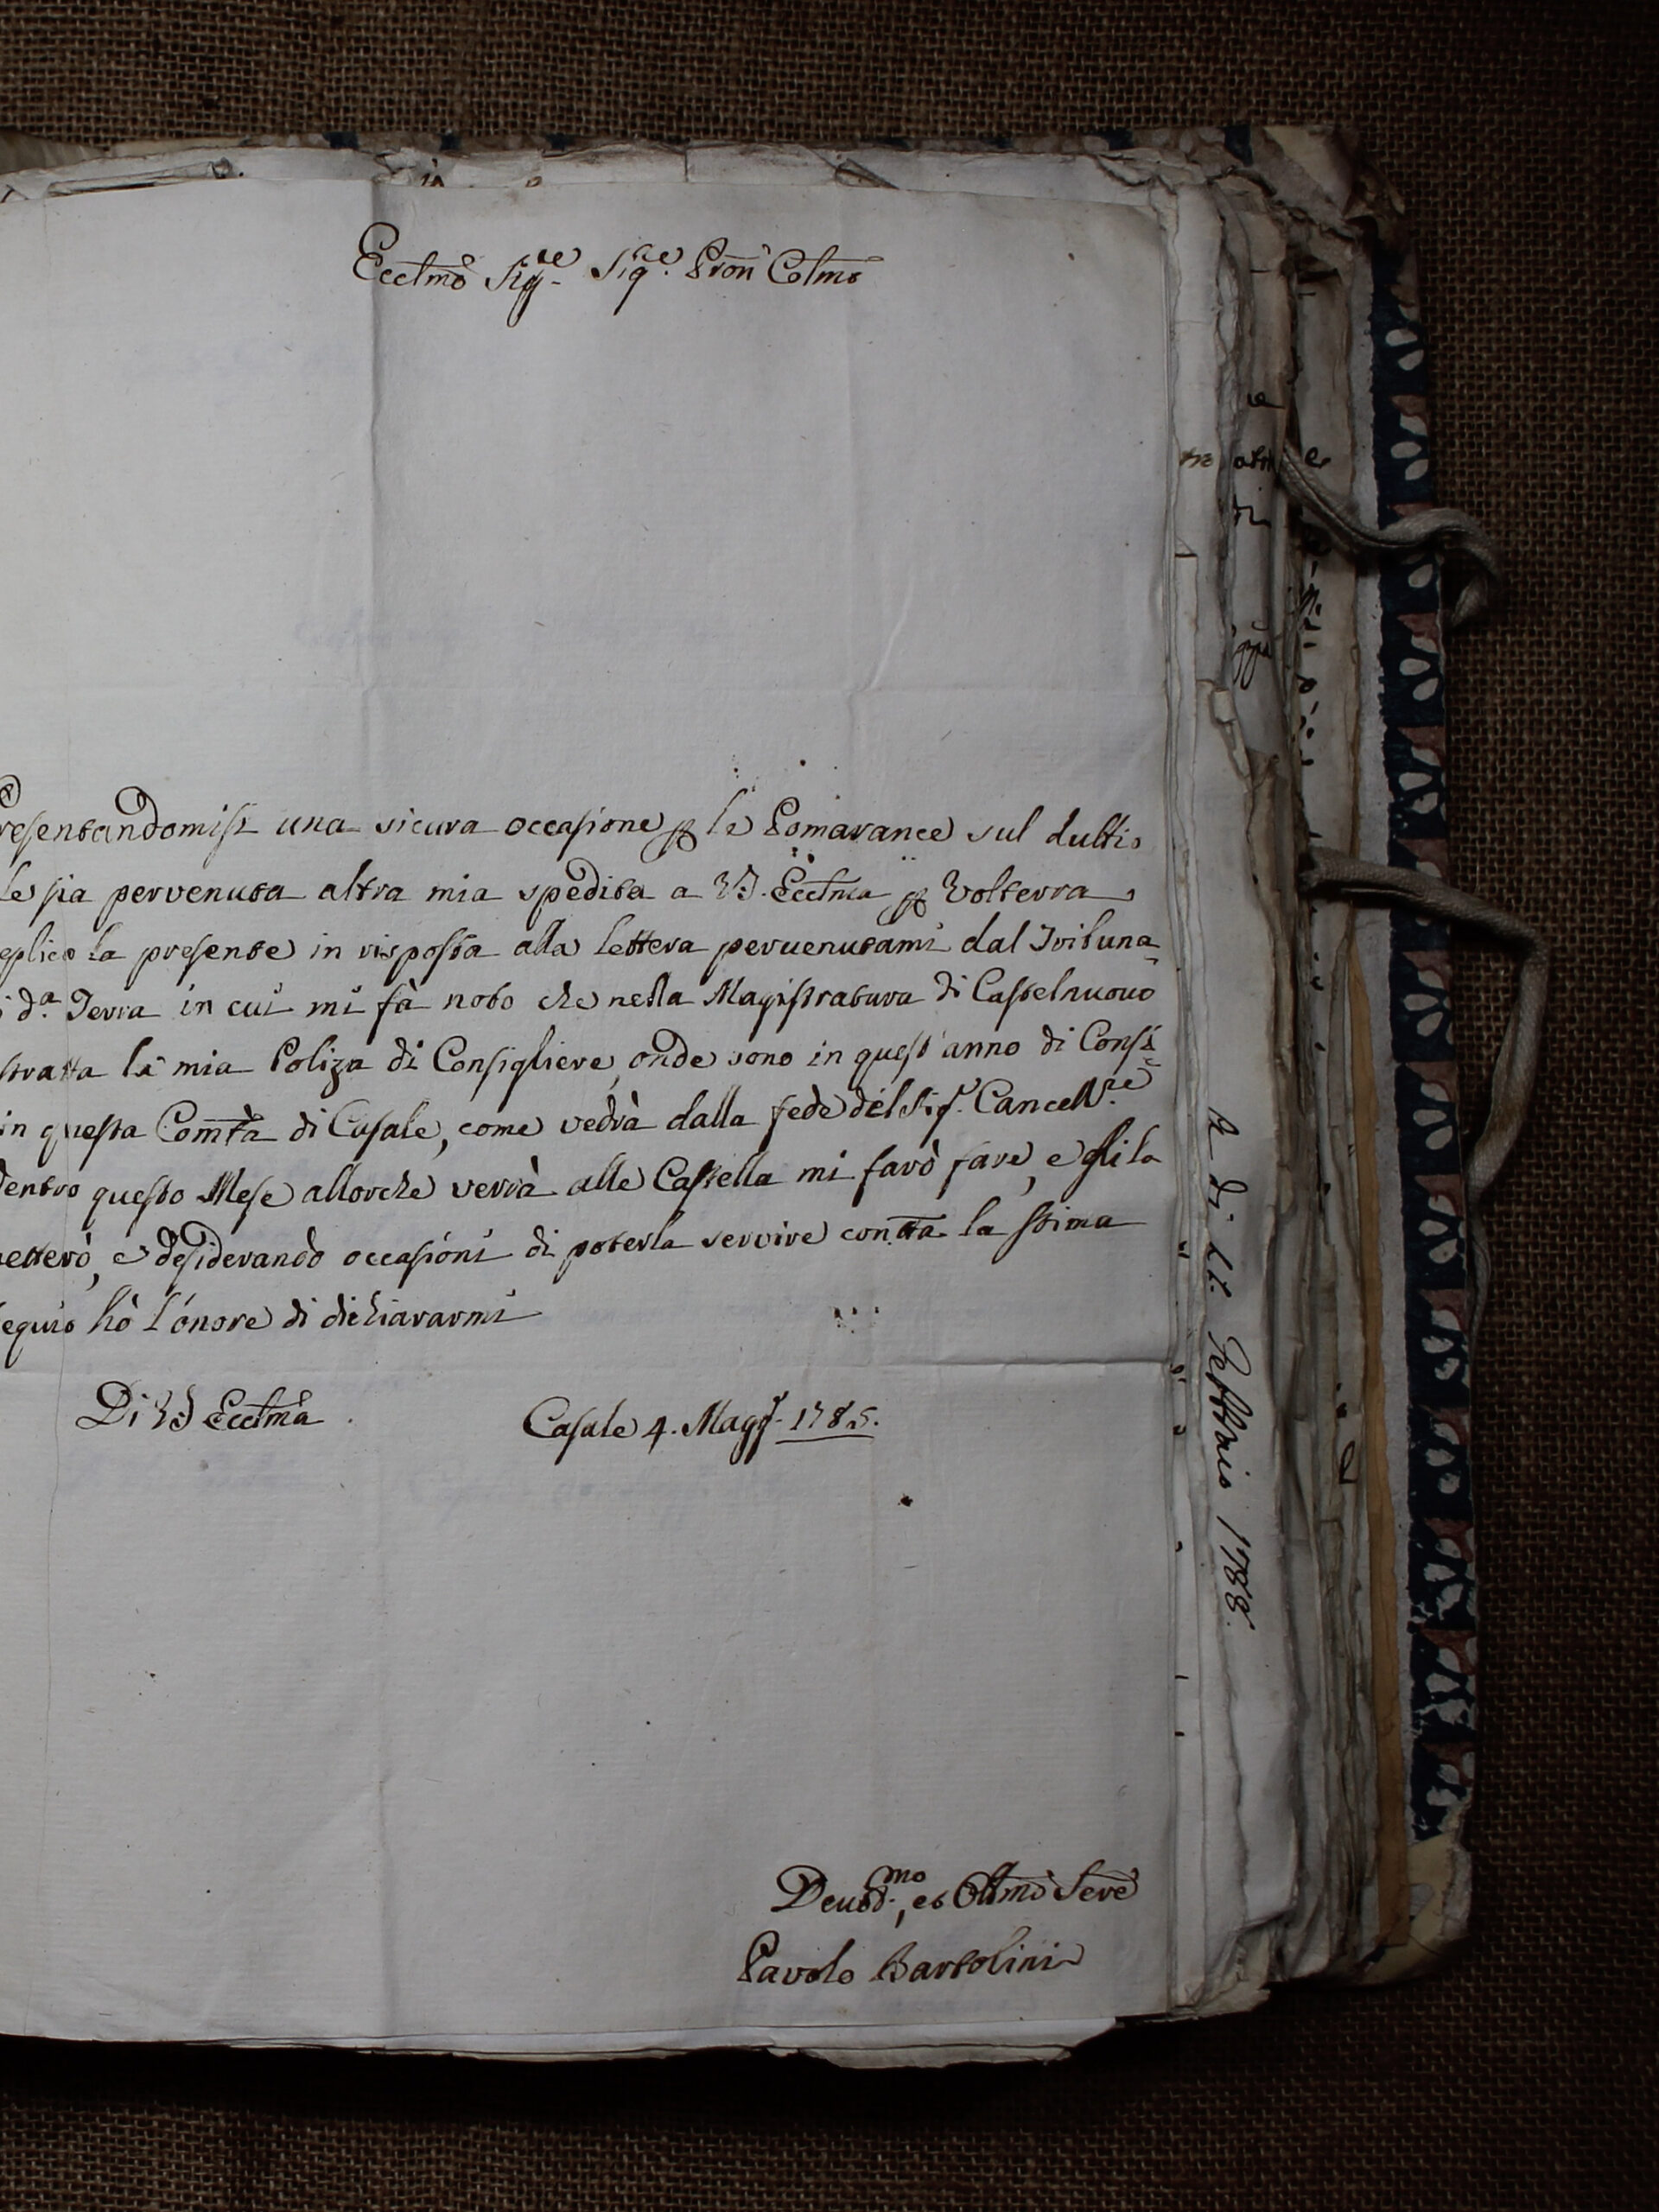 Ecctmo Sig.re Sig.re Pron Colmo
resentandomisi una sicura occasione p le Pomarance sul dubbio
le sia pervenuta altra mia spedita a VS. Ecctma p Volterra
eplico la presente in risposta alla lettera pervenutami dal Tribuna=
i d.a Terra in cui mi fà noto che nella Magistratura di Castelnuovo
stratta la mia Poliza di Consigliere, onde sono in quest'anno di Consi=
in questa Comtà di Casale, come vedrà dalla fede del Sig.r Cancell.re
dentro questo Mese allorche verrà alle Castella mi farò fare, e gli la
etterò, e desiderando occasioni di poterla servire con tta la stima
equio hò l'onore di dichiararmi
Di VS Ecctma
Casale 4. Magg.o 1785.
Devot.mo, et Obbmo Sere
Pavolo Bartolini
A di 21. Febbraio 1788.